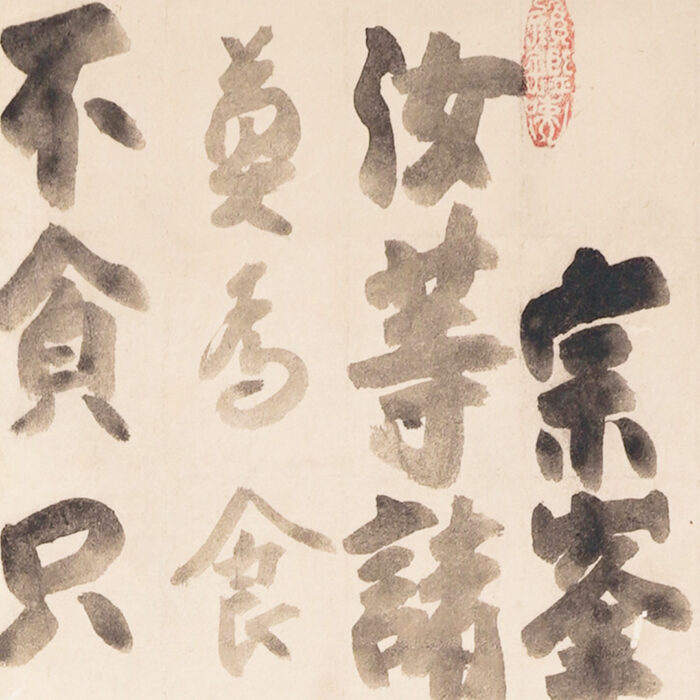 宗峯
汝等諸
莫為食
不貪只